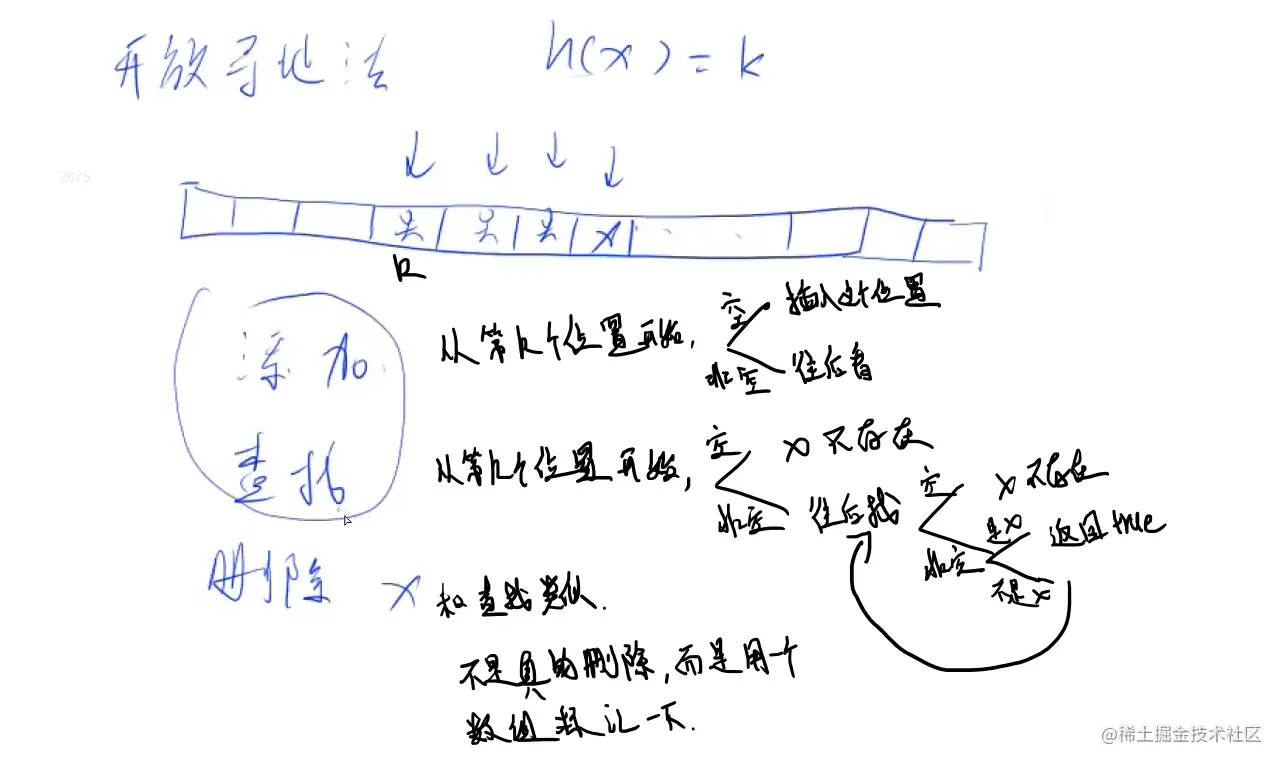 开放寻址法 h(x) = k
2675
x
k
添加 从第k个位置开始, 空 插入这个位置
非空 往后看
查找 从第k个位置开始, 空 x不存在
非空 往后找 空 x不存在
非空 是x 返回true
不是x
删除 x 和查找类似.
不是真的删除,而是用个
数值标记一下.
@稀土掘金技术社区